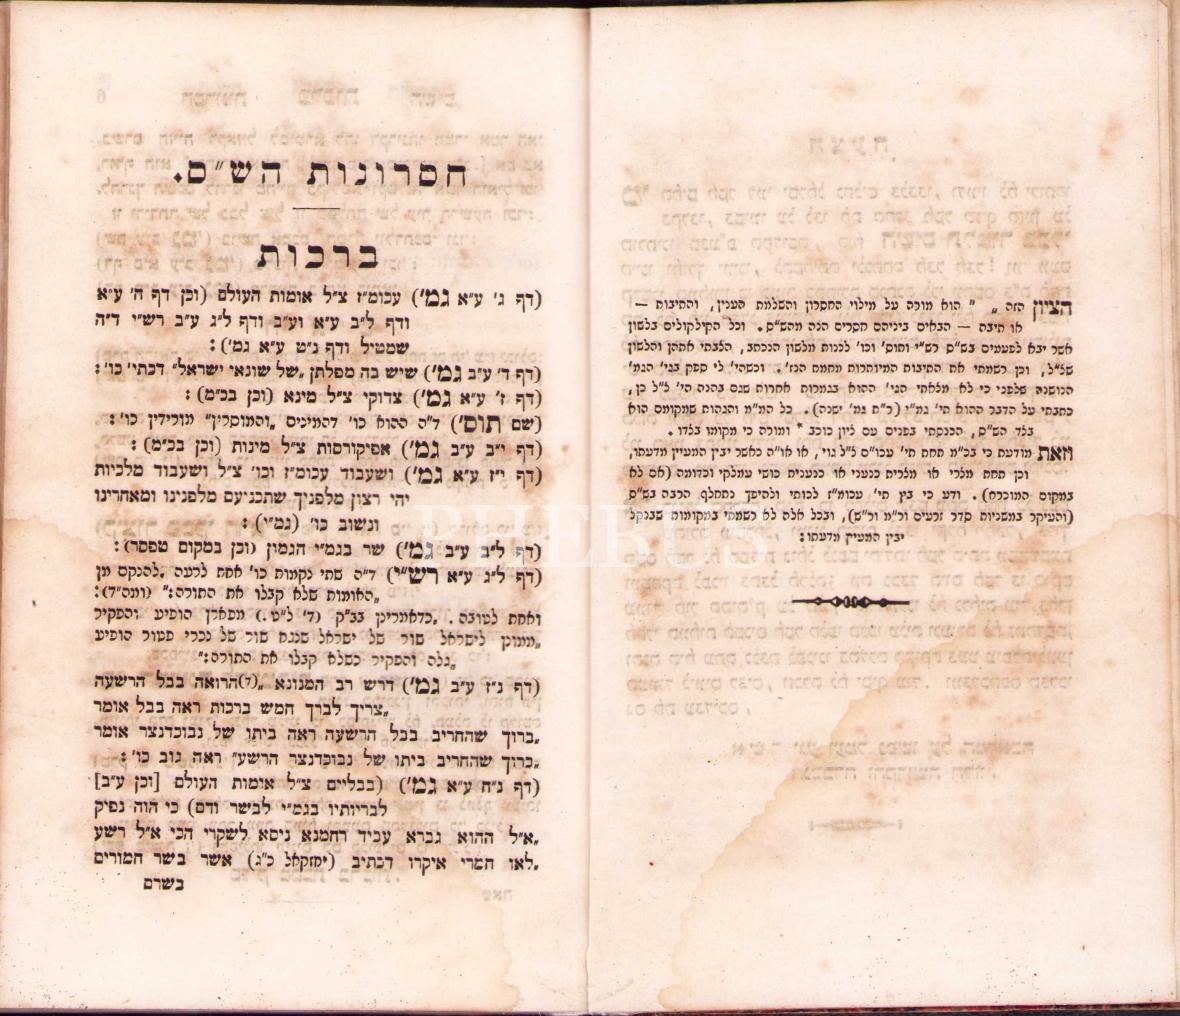 הציון הזה „ ” הוא מורה על מילוי החסרון והשלמת הענין, והתיבות —
או תיבה — הבאים ביניהם חסרים הנה מהש״ס. וכל הקילקולים בלשון
אשר יבא לפעמים בש״ס רש״י ותוס׳ וכו׳ לכנות מלשון הנכתב,
וכן רשמתי את התיבות המיותרות מחמת הנז׳. וכשהי׳ לי ספק בגי׳ הגמ׳
הישנה שלפני כי לא מלאתי הגי׳ ההוא בגמרות אחרות שגם בהנה הי׳ ל״ל כן,
כתבתי על הדבר ההוא תי׳ גמ״י (ר״ת גמ׳ ישנה). כל המ״מ והגהות שמקומם הוא
בלד הש״ס, הכנסתי בפנים עם ליון כוכב * ומורה כי מקומו בלדו.
וזאת מודעת כי בכ״מ תחת תי׳ עכו״ם ל״ל גוי, או או״ה כאשר יבין המעיין מדעתו,
וכן תחת מלרי או מלרית כנעני או כנענית כושי עמלקי וכדומה (אם לא
במקום המוכרח). ודע כי בין תי׳ עכומ״ז לכותי ולהיפך נתחלף הרבה בש״ס
(והעיקר במשניות סדר זרעים ור״מ ור״ש), ובכל אלה לא רשמתי במקומות שבנקל
יבין המעיין מדעתו:
חסרונות הש״ס.
ברכות
(דף ג׳ ע״א גמ׳) עכומ״ז צ״ל אומות העולם (וכן דף ה׳ ע״א
ודף ל״ב ע״א וע״ב ודף ל״ג ע״ב רש״י ד״ה
שמטיל ודף נ״ט ע״א גמ׳):
(דף ד׳ ע״ב גמ׳) שיש בה מפלתן „של שונאי ישראל” דכתי׳ כו׳:
(דף ז׳ ע״א גמ׳) צדוקי צ״ל מינא (וכן בכ״מ):
(שם תוס׳) ד״ה ההוא כו׳ דהמינים „והמוסרין” מורידין כו׳:
(דף י״ב ע״ב גמ׳) אפיקורסות צ״ל מינות (וכן בכ״מ):
(דף י״ז ע״א גמ׳) ושעבוד עכומ״ז וכו׳ צ״ל ושעבוד מלכיות
יהי רצון מלפניך שתכניעם מלפנינו ומאחרינו
ונשוב כו׳ (גמ״י):
(דף ל״ב ע״ב גמ׳) שר בגמ״י הגמון (וכן במקום טפסר):
(דף ל״ג ע״א רש״י) ד״ה שתי נקמות כו׳ אחת לרעה „להנקם מן
„האומות שלא קבלו את התורה:” (ומה״ד):
ואחת לטובה. „כדאמרינן בב״ק (ד׳ ל״ט.) מפארן הופיע והפקיר
„ממונן לישראל שור של ישראל שנגח שור של נכרי פטור הופיע
„גלה והפקיר כשלא קבלו את התורה:”
(דף נ״ז ע״ב גמ׳) דרש רב המנונא „(ד)הרואה בבל הרשעה
„צריך לברך חמש ברכות ראה בבל אומר
„ברוך שהחריב בבל הרשעה ראה ביתו של נבוכדנצר אומר
„ברוך שהחריב ביתו של נבוכדנצר הרשע” ראה גוב כו׳:
(דף נ״ח ע״א גמ׳) (בבליים צ״ל אומות העולם [וכן ע״ב]
לבריותיו בגמ״י לבשר ודם) כי הוה נפיק
„א״ל ההוא גברא עביד רחמנא ניסא לשקרי הכי א״ל רשע
„לאו חמרי איקרו דכתיב (יחזקאל כ״ג) אשר בשר חמורים
בשרם